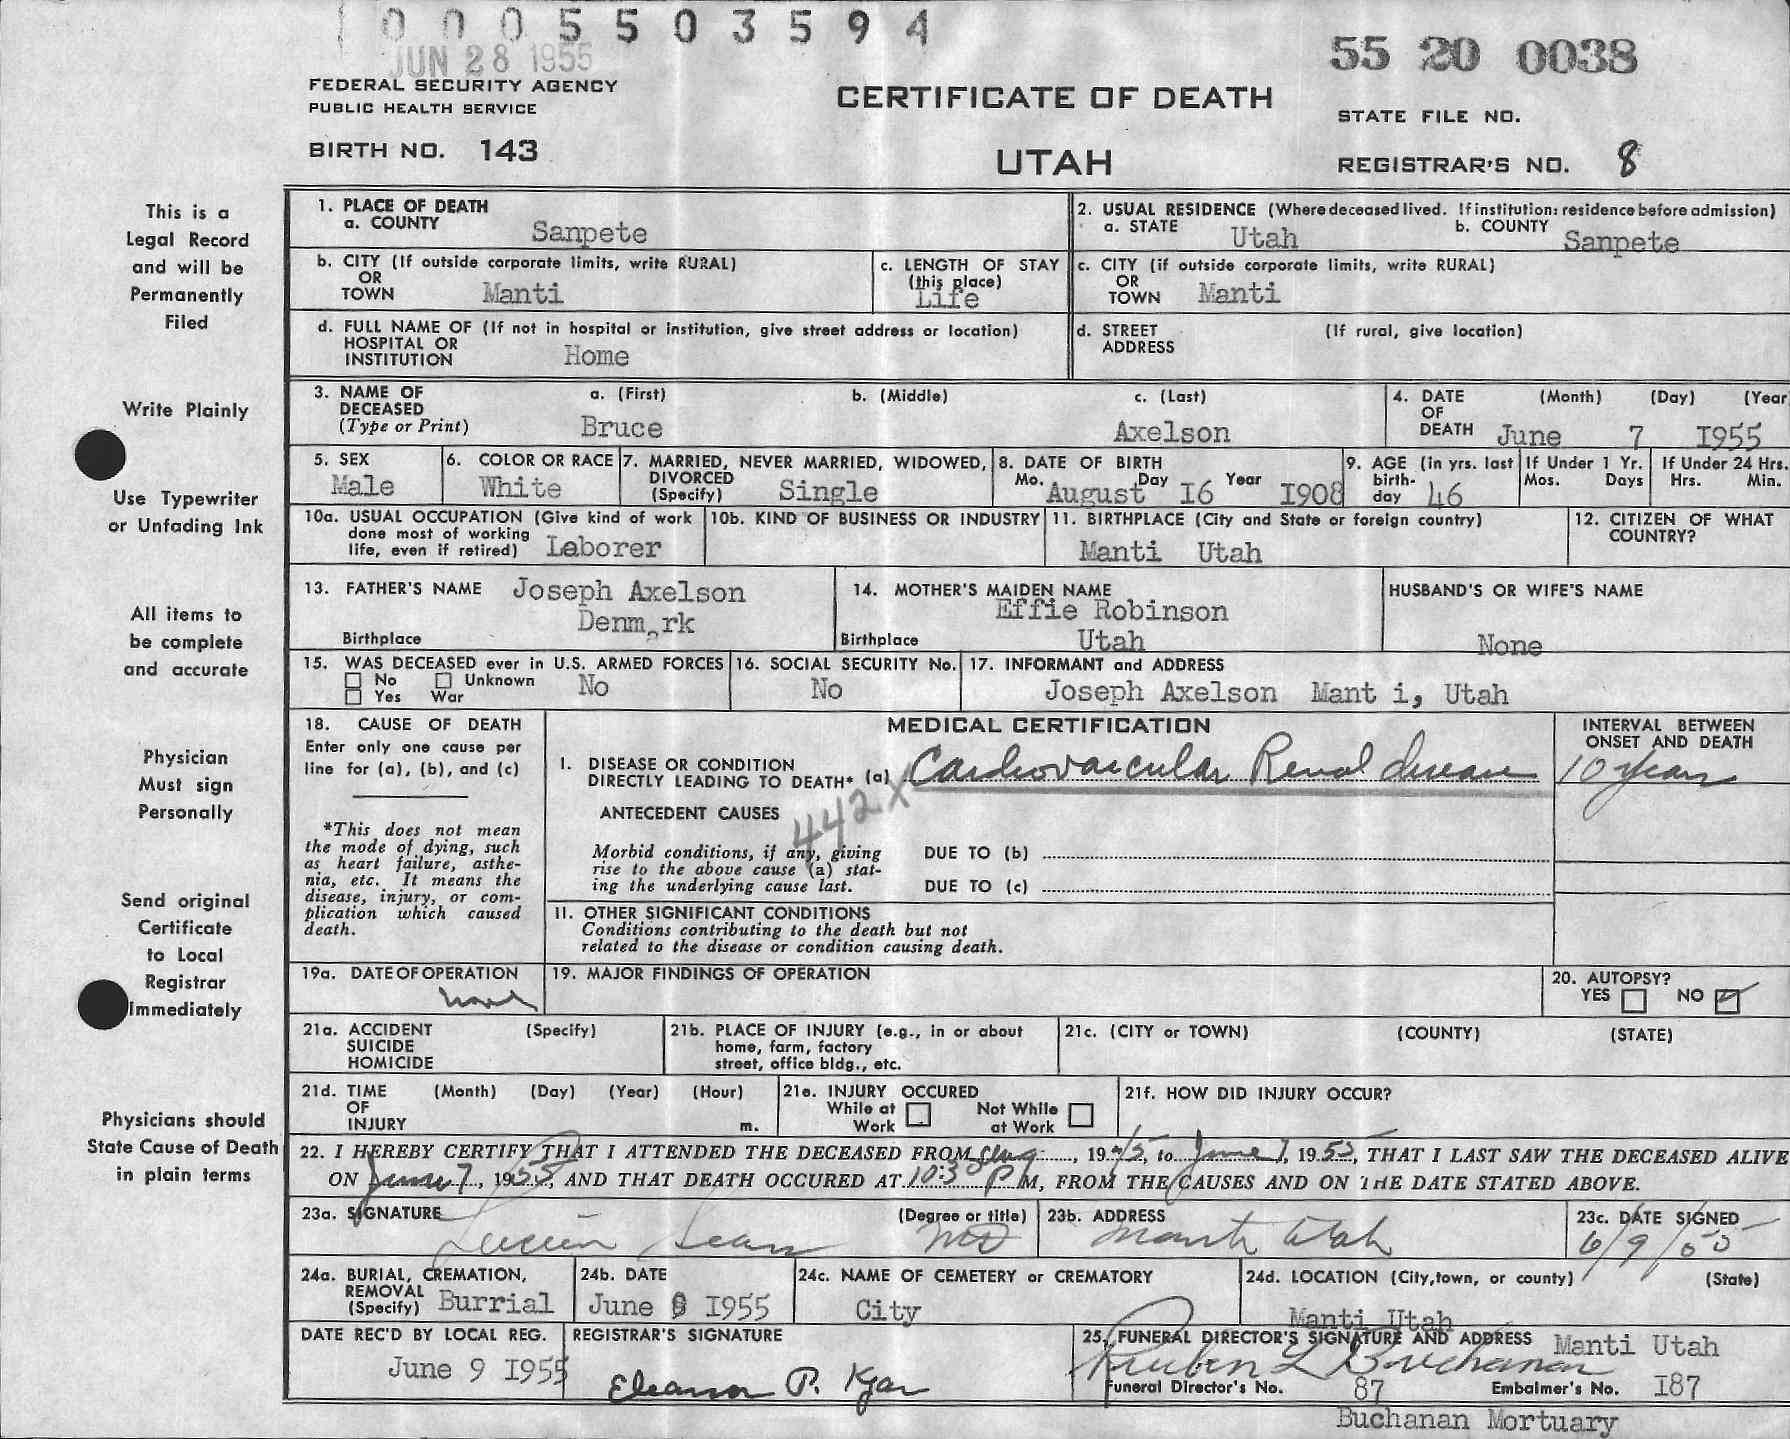 0005503594
JUN 28 1955
55 20 0038
FEDERAL SECURITY AGENCY
PUBLIC HEALTH SERVICE
CERTIFICATE OF DEATH
STATE FILE NO.
BIRTH NO. 143
UTAH
REGISTRAR'S NO. 8
This is a
Legal Record
and will be
Permanently
Filed
Write Plainly
Use Typewriter
or Unfading Ink
All items to
be complete
and accurate
Physician
Must sign
Personally
Send original
Certificate
to Local
Registrar
Immediately
Physicians should
State Cause of Death
in plain terms
1. PLACE OF DEATH
a. COUNTY Sanpete
2. USUAL RESIDENCE (Where deceased lived. If institution: residence before admission)
a. STATE Utah b. COUNTY Sanpete
b. CITY (If outside corporate limits, write RURAL)
OR
TOWN Manti
c. LENGTH OF STAY
(this place)
Life
c. CITY (if outside corporate limits, write RURAL)
OR
TOWN Manti
d. FULL NAME OF (If not in hospital or institution, give street address or location)
HOSPITAL OR
INSTITUTION Home
d. STREET (If rural, give location)
ADDRESS
3. NAME OF a. (First) b. (Middle) c. (Last)
DECEASED
(Type or Print) Bruce Axelson
4. DATE (Month) (Day) (Year
OF
DEATH June 7 I955
5. SEX
Male
6. COLOR OR RACE
White
7. MARRIED, NEVER MARRIED, WIDOWED,
DIVORCED
(Specify) Single
8. DATE OF BIRTH
Mo. Day Year
August I6 I908
9. AGE (in yrs. last
birth-
day 46
If Under 1 Yr.
Mos. Days
If Under 24 Hrs.
Hrs. Min.
10a. USUAL OCCUPATION (Give kind of work
done most of working
life, even if retired) Laborer
10b. KIND OF BUSINESS OR INDUSTRY
11. BIRTHPLACE (City and State or foreign country)
Manti Utah
12. CITIZEN OF WHAT
COUNTRY?
13. FATHER'S NAME Joseph Axelson
Denmark
Birthplace
14. MOTHER'S MAIDEN NAME
Effie Robinson
Birthplace Utah
HUSBAND'S OR WIFE'S NAME
None
15. WAS DECEASED ever in U.S. ARMED FORCES
No Unknown No
Yes War
16. SOCIAL SECURITY No.
No
17. INFORMANT and ADDRESS
Joseph Axelson Mant i, Utah
18. CAUSE OF DEATH
Enter only one cause per
line for (a), (b), and (c)
*This does not mean
the mode of dying, such
as heart failure, asthe-
nia, etc. It means the
disease, injury, or com-
plication which caused
death.
MEDICAL CERTIFICATION
INTERVAL BETWEEN
ONSET AND DEATH
I. DISEASE OR CONDITION
DIRECTLY LEADING TO DEATH* (a) Cardiovascular Renal disease 10 years
442X
ANTECEDENT CAUSES
Morbid conditions, if any, giving
rise to the above cause (a) stat-
ing the underlying cause last.
DUE TO (b)
DUE TO (c)
II. OTHER SIGNIFICANT CONDITIONS
Conditions contributing to the death but not
related to the disease or condition causing death.
19a. DATE OF OPERATION
none
19. MAJOR FINDINGS OF OPERATION
20. AUTOPSY?
YES NO
21a. ACCIDENT (Specify)
SUICIDE
HOMICIDE
21b. PLACE OF INJURY (e.g., in or about
home, farm, factory
street, office bldg., etc.
21c. (CITY or TOWN) (COUNTY) (STATE)
21d. TIME (Month) (Day) (Year) (Hour)
OF
INJURY m.
21e. INJURY OCCURED
While at Not While
Work at Work
21f. HOW DID INJURY OCCUR?
22. I HEREBY CERTIFY THAT I ATTENDED THE DECEASED FROM Aug, 1945, to June 7, 1955, THAT I LAST SAW THE DECEASED ALIVE
ON June 7, 1955, AND THAT DEATH OCCURED AT 10:30 P M, FROM THE CAUSES AND ON THE DATE STATED ABOVE.
23a. SIGNATURE (Degree or title)
Lucien Sears MD
23b. ADDRESS
Manti Utah
23c. DATE SIGNED
6/9/55
24a. BURIAL, CREMATION,
REMOVAL
(Specify) Burrial
24b. DATE
June 9 I955
24c. NAME OF CEMETERY or CREMATORY
City
24d. LOCATION (City, town, or county) (State)
Manti Utah
DATE REC'D BY LOCAL REG.
June 9 I955
REGISTRAR'S SIGNATURE
Eleanor P. Kjar
25. FUNERAL DIRECTOR'S SIGNATURE AND ADDRESS Manti Utah
Reuben L Buchanan
Funeral Director's No. 87 Embalmer's No. I87
Buchanan Mortuary